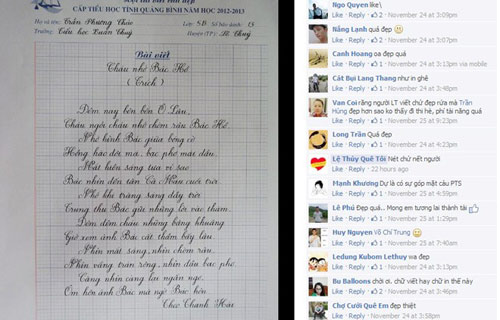 CẤP TIỂU HỌC TỈNH QUẢNG BÌNH NĂM HỌC 2012-2013
Họ và tên: Trần Phương Thảo Lớp: 5B Số báo danh: 13
Trường: Tiểu học Xuân Thuỷ Huyện (TP): Lệ Thuỷ
Bài viết
Cháu nhớ Bác Hồ
(Trích)
Đêm nay bên bến Ô Lâu,
Cháu ngồi cháu nhớ chòm râu Bác Hồ.
Nhớ hình Bác giữa bóng cờ
Hồng hào đôi má, bạc phơ mái đầu.
Mắt hiền sáng tựa vì sao
Bác nhìn đến tận Cà Mau cuối trời.
Nhớ khi trăng sáng đầy trời
Trung thu Bác gửi những lời vào thăm.
Đêm đêm cháu những bâng khuâng
Giở xem ảnh Bác cất thầm bấy lâu.
Nhìn mắt sáng, nhìn chòm râu,
Nhìn vầng trán rộng, nhìn đầu bạc phơ.
Càng nhìn càng lại ngẩn ngơ,
Ôm hôn ảnh Bác mà ngỡ Bác hôn.
Theo Thanh Hải
Ngo Quyen like\
Like · Reply · 2 · November 24 at 3:09pm
Nắng Lạnh quá đẹp
Like · Reply · 2 · November 24 at 3:11pm
Canh Hoang oa đẹp quá
Like · Reply · 2 · November 24 at 3:13pm via mobile
Cát Bụi Lang Thang như in ghê
Like · Reply · 2 · November 24 at 3:48pm
Van Coi rằng người LT viết chữ đẹp rứa mà Trần
Hùng đẹp hơn sao ko thấy đi thi hè, phí tài năng quá
Like · Reply · 2 · November 25 at 9:23pm
Long Trần Quá đẹp
Like · Reply · 1 · November 24 at 4:23pm
Lệ Thủy Quê Tôi Nét chử nết người
Like · Reply · 22 hours ago
Mạnh Khương Dự là có sự góp mặt cảu PTS
Like · Reply · 1 · November 24 at 4:57pm
Lê Phú Đẹp quá... Mong em tương lai thành tài
Like · Reply · 1 · November 25 at 1:29pm
Huy Nguyen Võ Chí Trung
Like · Reply · 1 · November 25 at 7:40am
Ledung Kubom Lethuy wa đẹp
Like · Reply · 1 · November 24 at 3:46pm
Bu Balloons chời ơi, chữ viết hay chữ in thế này
Like · Reply · 1 · November 24 at 3:13pm
Chợ Cưới Quê Em đẹp thiệt
Like · Reply · 1 · November 24 at 3:58pm